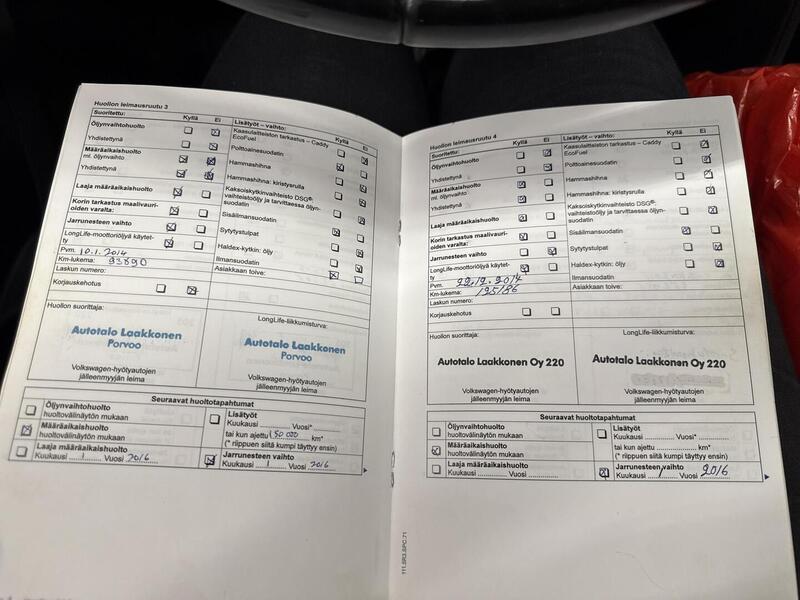 Huollon leimausruutu 3
Suoritettu: Kyllä Ei
Öljynvaihtohuolto
Yhdistettynä
Määräaikaishuolto
ml. öljynvaihto
Yhdistettynä
Laaja määräaikaishuolto
Korin tarkastus maalivauri-
oiden varalta:
Jarrunesteen vaihto
LongLife-moottoriöljyä käytet-
ty
Pvm. 10.1. 2014
Km-lukema: 93890
Laskun numero:
Korjauskehotus
Lisätyöt – vaihto: Kyllä Ei
Kaasulaitteiston tarkastus – Caddy
EcoFuel
Polttoainesuodatin
Hammashihna
Hammashihna: kiristysrulla
Kaksoiskytkinvaihteisto DSG®:
vaihteistoöljy ja tarvittaessa öljyn-
suodatin
Sisäilmansuodatin
Sytytystulpat
Haldex-kytkin: öljy
Ilmansuodatin
Asiakkaan toive:
Huollon suorittaja:
Autotalo Laakkonen
Porvoo
Volkswagen-hyötyautojen
jälleenmyyjän leima
LongLife-liikkumisturva:
Autotalo Laakkonen
Porvoo
Volkswagen-hyötyautojen
jälleenmyyjän leima
Seuraavat huoltotapahtumat
Öljynvaihtohuolto
huoltovälinäytön mukaan
Määräaikaishuolto
huoltovälinäytön mukaan
Laaja määräaikaishuolto
Kuukausi 1 Vuosi 2016
Lisätyöt
Kuukausi Vuosi*
tai kun ajettu 150 000 km*
(* riippuen siitä kumpi täyttyy ensin)
Jarrunesteen vaihto
Kuukausi 1 Vuosi 2016
Huollon leimausruutu 4
Suoritettu: Kyllä Ei
Öljynvaihtohuolto
Yhdistettynä
Määräaikaishuolto
ml. öljynvaihto
Yhdistettynä
Laaja määräaikaishuolto
Korin tarkastus maalivauri-
oiden varalta:
Jarrunesteen vaihto
LongLife-moottoriöljyä käytet-
ty
Pvm. 22.12.2014
Km-lukema: 125186
Laskun numero:
Korjauskehotus
Lisätyöt – vaihto: Kyllä Ei
Kaasulaitteiston tarkastus – Caddy
EcoFuel
Polttoainesuodatin
Hammashihna
Hammashihna: kiristysrulla
Kaksoiskytkinvaihteisto DSG®:
vaihteistoöljy ja tarvittaessa öljyn-
suodatin
Sisäilmansuodatin
Sytytystulpat
Haldex-kytkin: öljy
Ilmansuodatin
Asiakkaan toive:
Huollon suorittaja:
Autotalo Laakkonen Oy 220
Volkswagen-hyötyautojen
jälleenmyyjän leima
LongLife-liikkumisturva:
Autotalo Laakkonen Oy 220
Volkswagen-hyötyautojen
jälleenmyyjän leima
Seuraavat huoltotapahtumat
Öljynvaihtohuolto
huoltovälinäytön mukaan
Määräaikaishuolto
huoltovälinäytön mukaan
Laaja määräaikaishuolto
Kuukausi Vuosi
Lisätyöt
Kuukausi Vuosi*
tai kun ajettu km*
(* riippuen siitä kumpi täyttyy ensin)
Jarrunesteen vaihto
Kuukausi Vuosi 2016
111.5R3.SPC.71